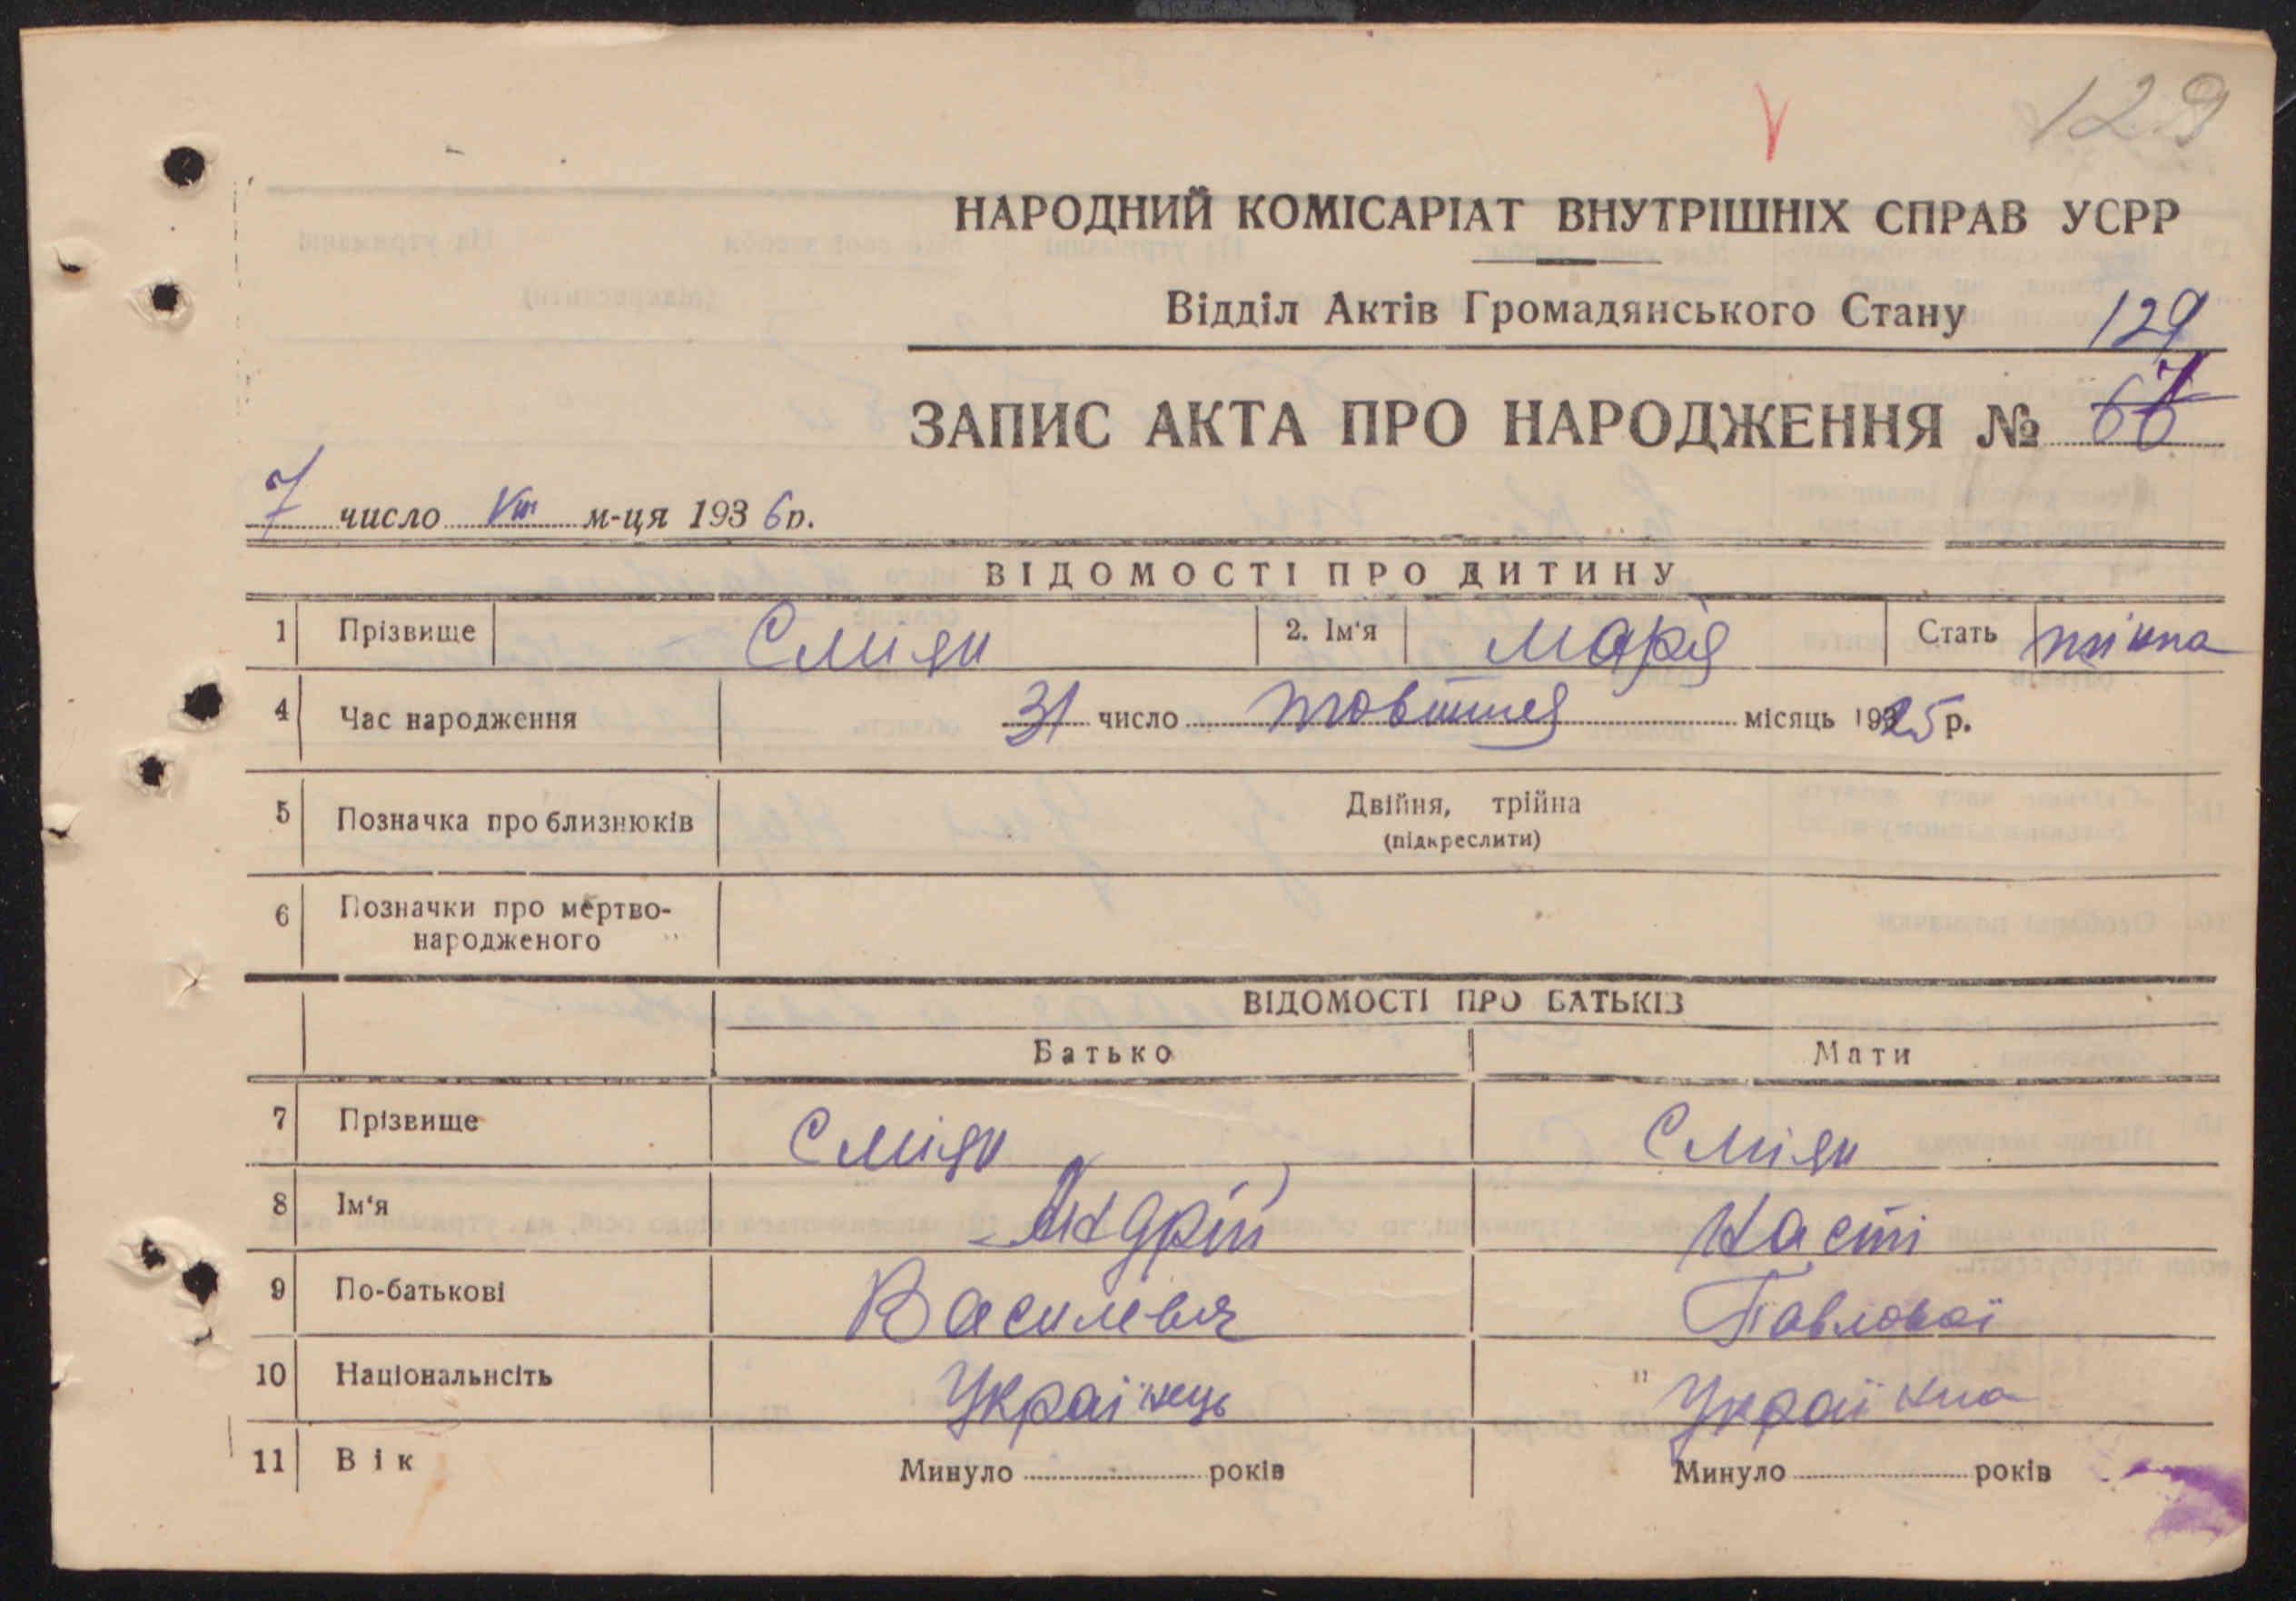 129
НАРОДНИЙ КОМІСАРІАТ ВНУТРІШНІХ СПРАВ УСРР
Відділ Актів Громадянського Стану 129
ЗАПИС АКТА ПРО НАРОДЖЕННЯ № 67
7 число VIII м-ця 1936 р.
ВІДОМОСТІ ПРО ДИТИНУ
1 Прізвище Смиян 2. Ім'я Марія Стать жінка
4 Час народження 31 число жовтня місяць 1925 р.
5 Позначка про близнюків Двійня, трійна
(підкреслити)
6 Позначки про мертво-
народженого
ВІДОМОСТІ ПРО БАТЬКІВ
Батько Мати
7 Прізвище Сміян Сміян
8 Ім'я Андрій Насті
9 По-батькові Васильвич Павлової
10 Національнсіть Українець Українка
11 Вік Минуло років Минуло років